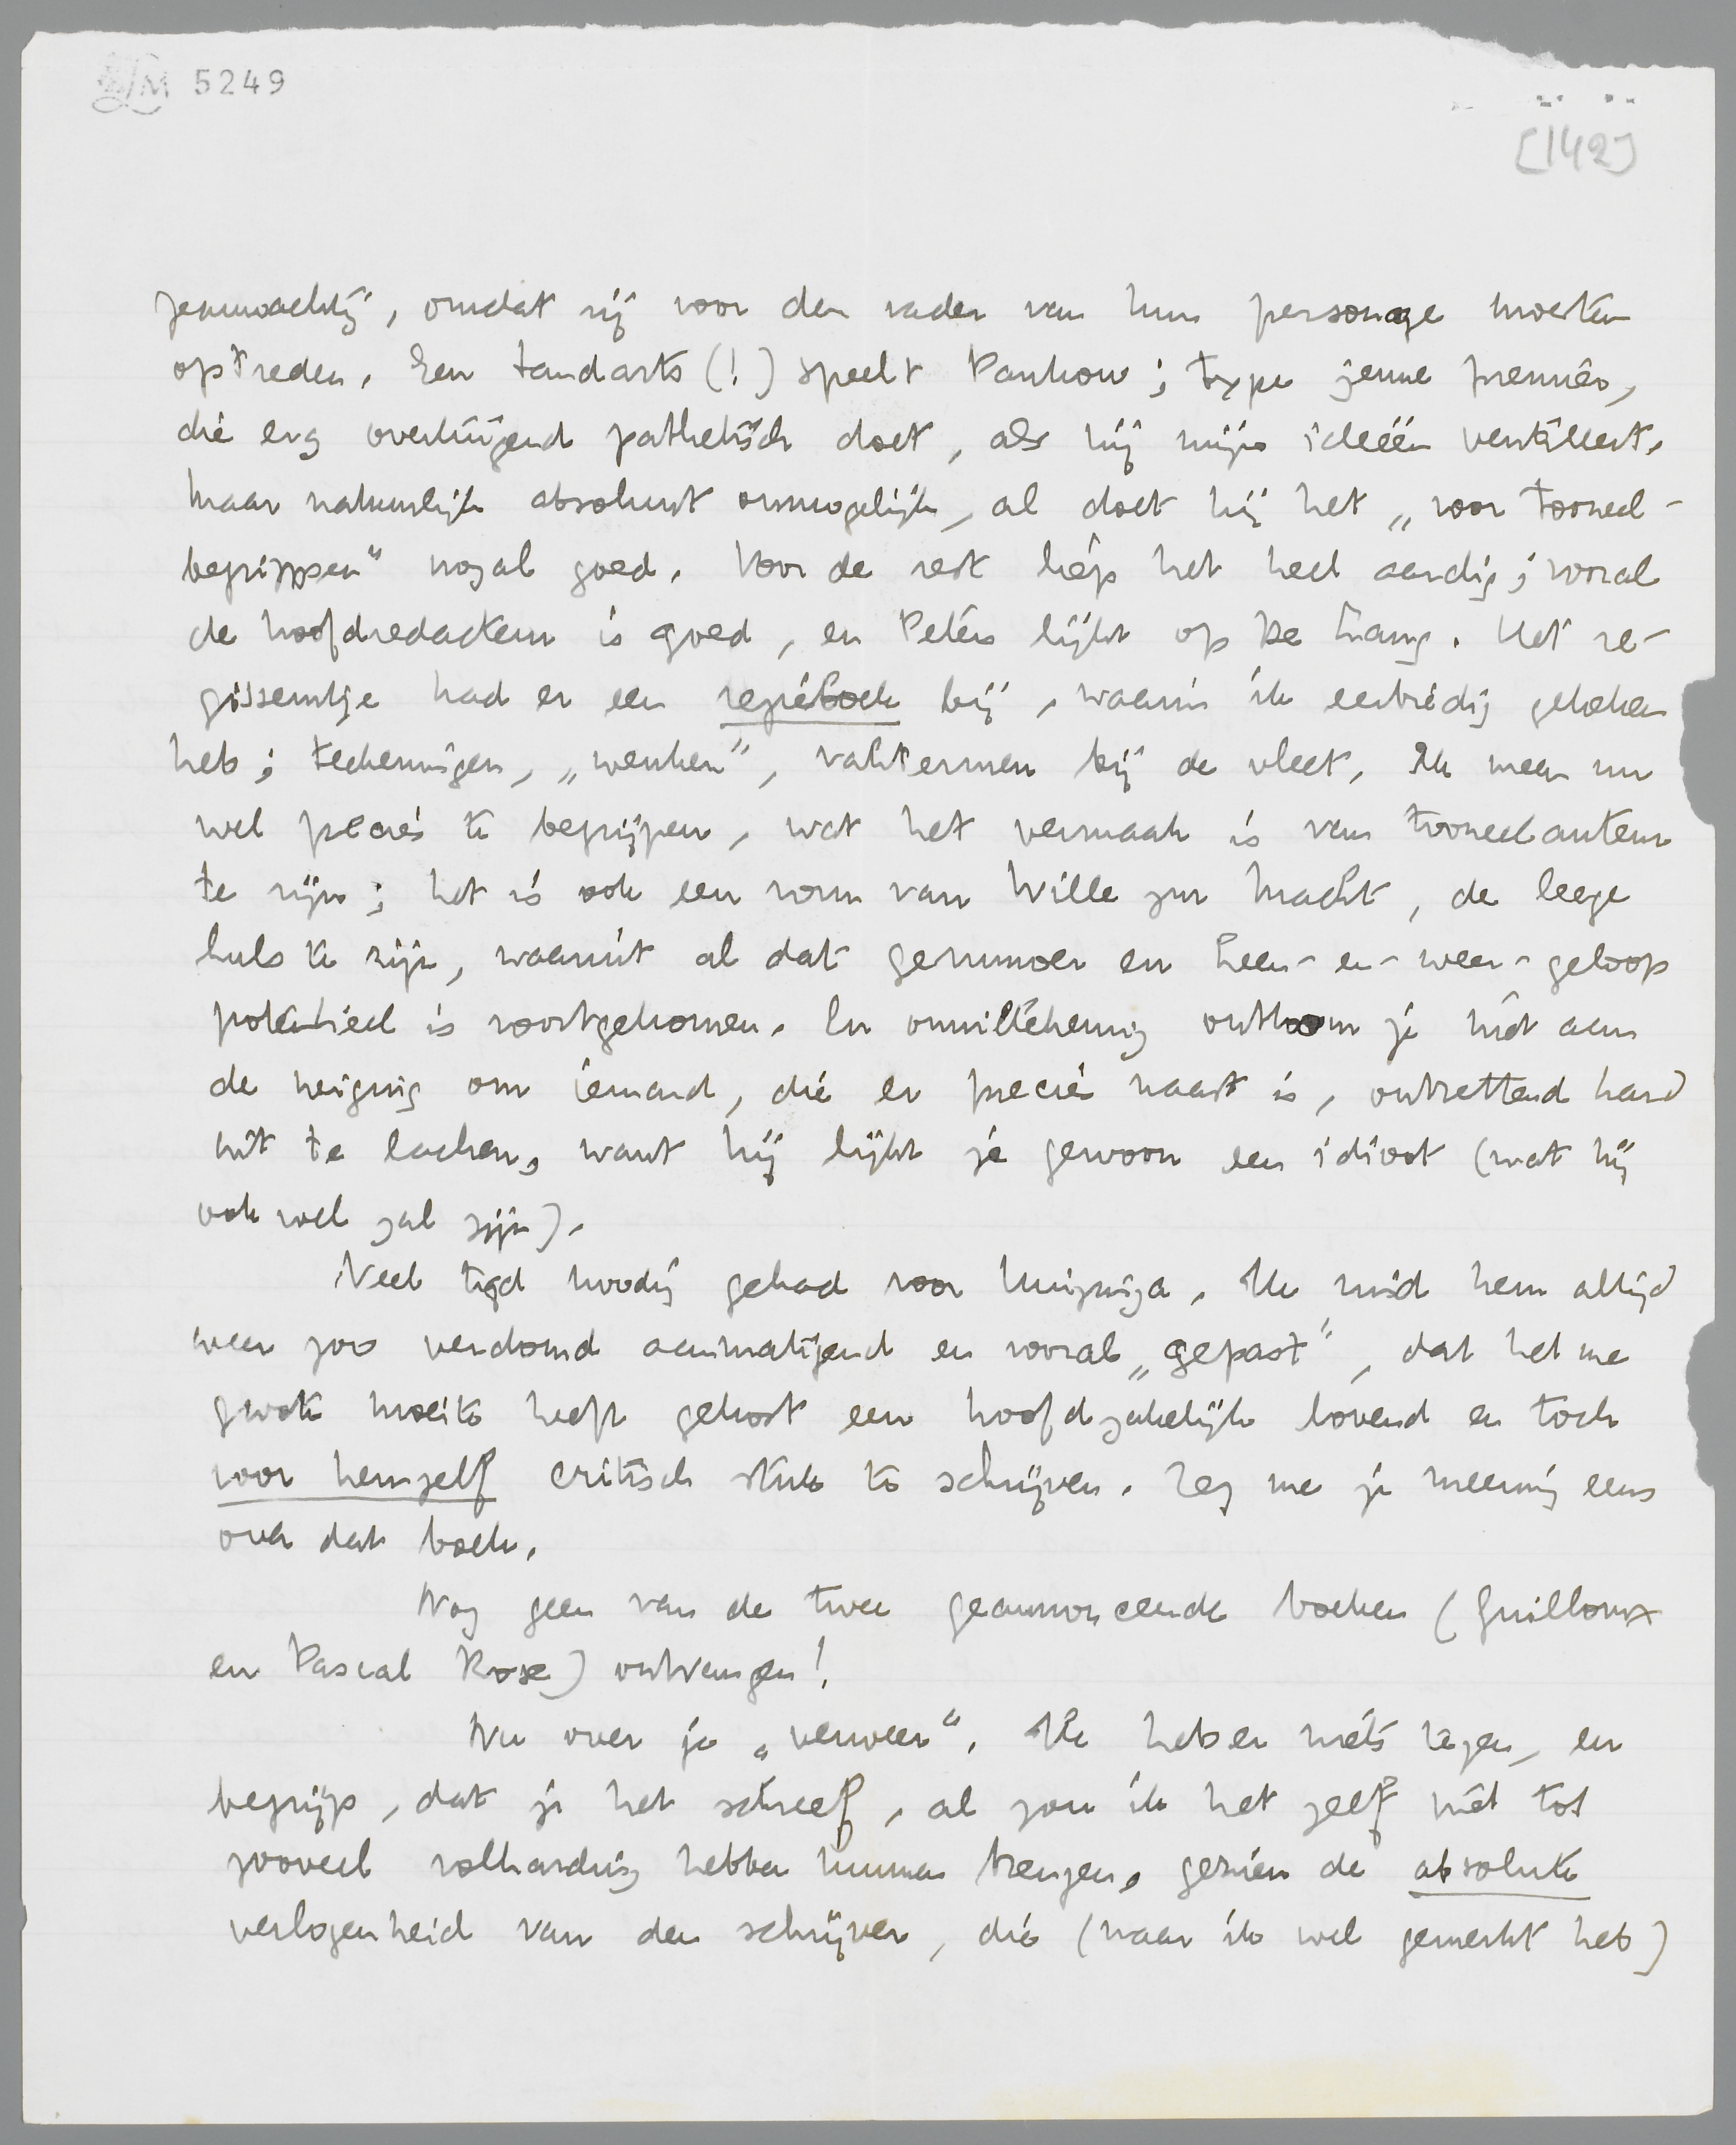 LM 5249
[142]
zenuwachtig, omdat zij voor den vader van hun personage moesten
optreden. Een tandarts (!) speelt Pankow; type jeune premier,
die erg overtuigend pathetisch doet, als hij mijn ideeën ventileert.
Maar natuurlijk absoluut onmogelijk, al doet hij het „voor tooneel-
begrippen" nogal goed. Voor de rest liep het heel aardig; vooral
de hoofdredacteur is goed, en Peters lijkt op De Haas. Het re-
gisseurtje had er een regieboek bij, waarin ik eerbiedig gekeken
heb; teekeningen, „wenken", vaktermen bij de vleet. Ik meen nu
wel precies te begrijpen, wat het vermaak is van tooneelauteur
te zijn; het is ook een vorm van Wille zur Macht, de leege
huls te zijn, waaruit al dat gerumoer en heen-en-weer-geloop
potentieel is voortgekomen. En onwillekeurig ontkom je niet aan
de neiging om iemand, die er precies naast is, ontzettend hard
uit te lachen, want hij lijkt je gewoon een idioot (wat hij
ook wel zal zijn).
Veel tijd noodig gehad voor Huizinga. Ik vind hem altijd
weer zoo verdomd aanmatigend en vooral „gepast", dat het me
groote moeite heeft gekost een hoofdzakelijk lovend en toch
voor hemzelf critisch stuk te schrijven. Zeg me je meening eens
over dat boek.
Nog geen van de twee geannonceerde boeken (Guilloux
en Pascal Rose) ontvangen!
Nu over je „verweer". Ik heb er niets tegen, en
begrijp, dat je het schreef, al zou ik het zelf niet tot
zooveel volharding hebben kunnen brengen, gezien de absolute
verlogenheid van den schrijver, die (naar ik wel gemerkt heb)